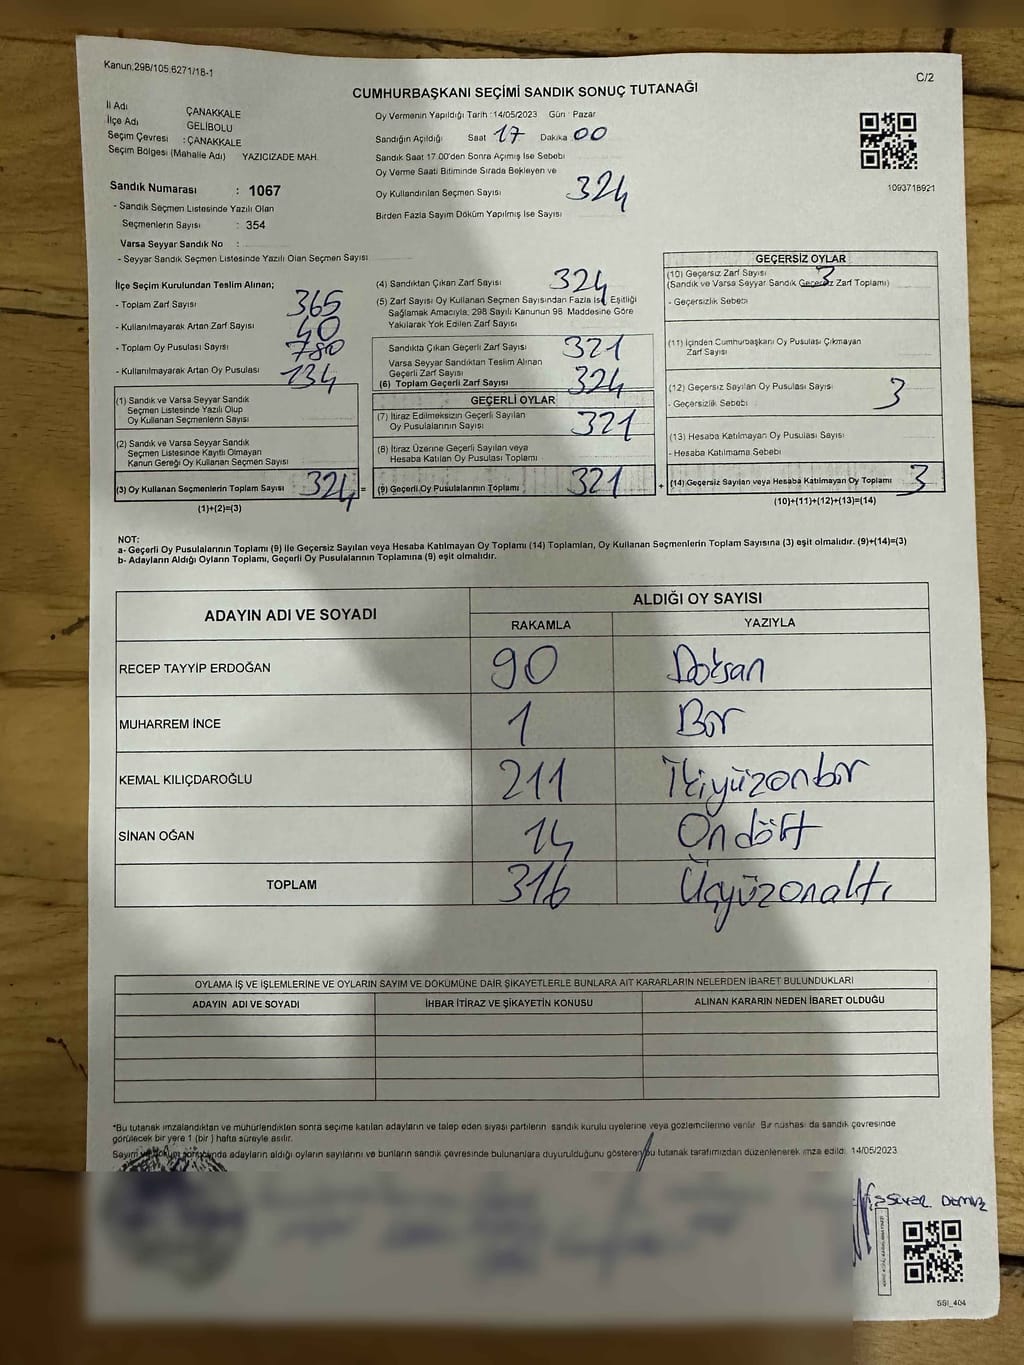 Kanun,298/105.6271/18-1
C/2
CUMHURBAŞKANI SEÇİMİ SANDIK SONUÇ TUTANAĞI
İl Adı ÇANAKKALE
İlçe Adı GELİBOLU
Seçim Çevresi : ÇANAKKALE
Seçim Bölgesi (Mahalle Adı) YAZICIZADE MAH.
Sandık Numarası : 1067
- Sandık Seçmen Listesinde Yazılı Olan
Seçmenlerin Sayısı : 354
Varsa Seyyar Sandık No :
- Seyyar Sandık Seçmen Listesinde Yazılı Olan Seçmen Sayısı
Oy Vermenin Yapıldığı Tarih : 14/05/2023 Gün : Pazar
Sandığın Açıldığı Saat 17 Dakika 00
Sandık Saat 17.00'den Sonra Açımış İse Sebebi
Oy Verme Saati Bitiminde Sırada Bekleyen ve
Oy Kullandırılan Seçmen Sayısı 324
Birden Fazla Sayım Döküm Yapılmış İse Sayısı
1093718921
İlçe Seçim Kurulundan Teslim Alınan;
- Toplam Zarf Sayısı 365
- Kullanılmayarak Artan Zarf Sayısı 40
- Toplam Oy Pusulası Sayısı 780
- Kullanılmayarak Artan Oy Pusulası 134
(1) Sandık ve Varsa Seyyar Sandık
Seçmen Listesinde Yazılı Olup
Oy Kullanan Seçmenlerin Sayısı
(2) Sandık ve Varsa Seyyar Sandık
Seçmen Listesinde Kayıtlı Olmayan
Kanun Gereği Oy Kullanan Seçmen Sayısı
(3) Oy Kullanan Seçmenlerin Toplam Sayısı 324 =
(1)+(2)=(3)
(4) Sandıktan Çıkan Zarf Sayısı 324
(5) Zarf Sayısı Oy Kullanan Seçmen Sayısından Fazla İse, Eşitliği
Sağlamak Amacıyla, 298 Sayılı Kanunun 98 Maddesine Göre
Yakılarak Yok Edilen Zarf Sayısı
Sandıkta Çıkan Geçerli Zarf Sayısı 321
Varsa Seyyar Sandıktan Teslim Alınan
Geçerli Zarf Sayısı
(6) Toplam Geçerli Zarf Sayısı 324
GEÇERLİ OYLAR
(7) İtiraz Edilmeksizin Geçerli Sayılan
Oy Pusulalarının Sayısı 321
(8) İtiraz Üzerine Geçerli Sayılan veya
Hesaba Katılan Oy Pusulası Toplamı
(9) Geçerli Oy Pusulalarının Toplamı 321 +
GEÇERSİZ OYLAR
(10) Geçersiz Zarf Sayısı 3
(Sandık ve Varsa Seyyar Sandık Geçersiz Zarf Toplamı)
- Geçersizlik Sebebi
(11) İçinden Cumhurbaşkanı Oy Pusulası Çıkmayan
Zarf Sayısı
(12) Geçersiz Sayılan Oy Pusulası Sayısı 3
- Geçersizlik Sebebi
(13) Hesaba Katılmayan Oy Pusulası Sayısı
- Hesaba Katılmama Sebebi
(14) Geçersiz Sayılan veya Hesaba Katılmayan Oy Toplamı 3
(10)+(11)+(12)+(13)=(14)
NOT:
a- Geçerli Oy Pusulalarının Toplamı (9) ile Geçersiz Sayılan veya Hesaba Katılmayan Oy Toplamı (14) Toplamları, Oy Kullanan Seçmenlerin Toplam Sayısına (3) eşit olmalıdır. (9)+(14)=(3)
b- Adayların Aldığı Oyların Toplamı, Geçerli Oy Pusulalarının Toplamına (9) eşit olmalıdır.
ADAYIN ADI VE SOYADI ALDIĞI OY SAYISI
RAKAMLA YAZIYLA
RECEP TAYYİP ERDOĞAN 90 Doksan
MUHARREM İNCE 1 Bir
KEMAL KILIÇDAROĞLU 211 İkiyüzonbir
SİNAN OĞAN 14 Ondört
TOPLAM 316 Üçyüzonaltı
OYLAMA İŞ VE İŞLEMLERİNE VE OYLARIN SAYIM VE DÖKÜMÜNE DAİR ŞİKAYETLERLE BUNLARA AİT KARARLARIN NELERDEN İBARET BULUNDUKLARI
ADAYIN ADI VE SOYADI İHBAR İTİRAZ VE ŞİKAYETİN KONUSU ALINAN KARARIN NEDEN İBARET OLDUĞU
*Bu tutanak imzalandıktan ve mühürlendikten sonra seçime katılan adayların ve talep eden siyasi partilerin sandık kurulu üyelerine veya gözlemcilerine verilir. Bir nüshası da sandık çevresinde
görülecek bir yere 1 (bir) hafta süreyle asılır.
Sayım ve döküm sonucunda adayların aldığı oyların sayılarını ve bunların sandık çevresinde bulunanlara duyurulduğunu gösteren bu tutanak tarafımızdan düzenlenerek imza edildi. 14/05/2023
SSİ_404